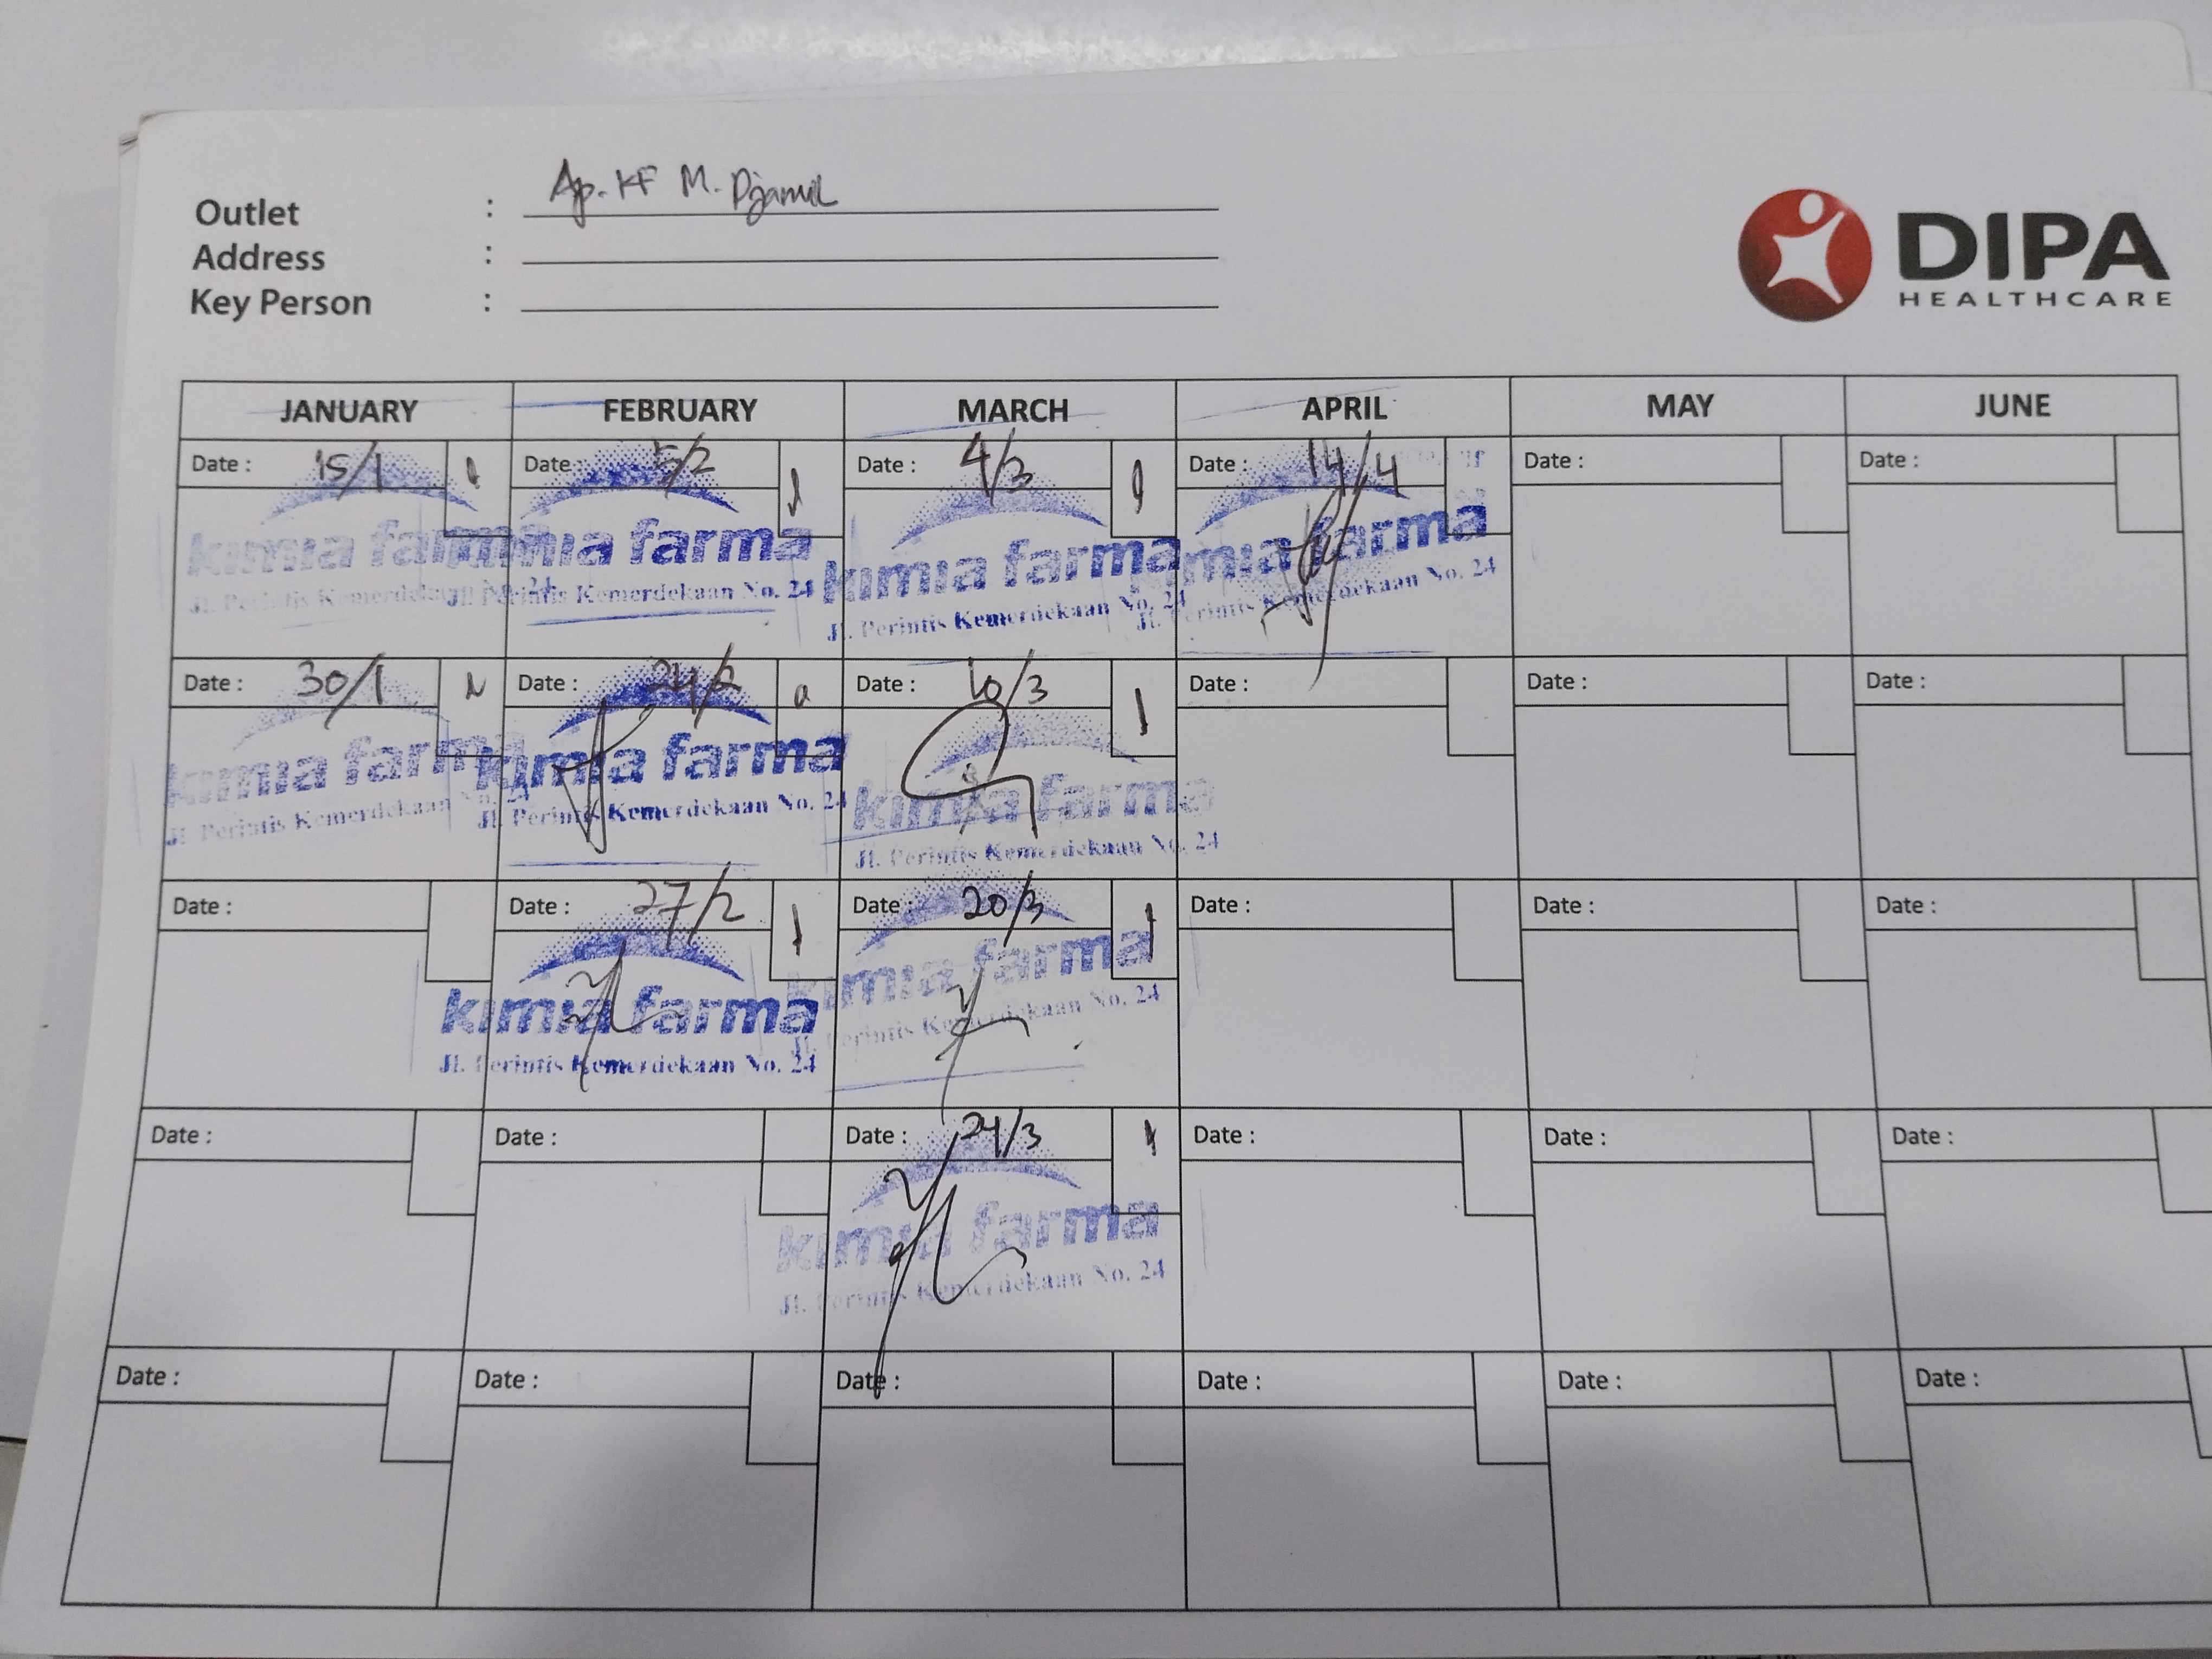 Outlet : Ap. KF M. Djamil
Address :
Key Person :
DIPA
HEALTHCARE
JANUARY FEBRUARY MARCH APRIL MAY JUNE
Date : 15/1 Date : 5/2 Date : 4/3 Date : 14/4 Date : Date :
kimia farma kimia farma kimia farma kimia farma
Jl. Perintis Kemerdekaan No. 24 Jl. Perintis Kemerdekaan No. 24 Jl. Perintis Kemerdekaan No. 24 Jl. Perintis Kemerdekaan No. 24
Date : 30/1 Date : 24/2 Date : 10/3 Date : Date : Date :
kimia farma kimia farma kimia farma
Jl. Perintis Kemerdekaan No. 24 Jl. Perintis Kemerdekaan No. 24 Jl. Perintis Kemerdekaan No. 24
Date : Date : 27/2 Date : 20/3 Date : Date : Date :
kimia farma kimia farma
Jl. Perintis Kemerdekaan No. 24 Jl. Perintis Kemerdekaan No. 24
Date : Date : Date : 24/3 Date : Date : Date :
kimia farma
Jl. Perintis Kemerdekaan No. 24
Date : Date : Date : Date : Date : Date :